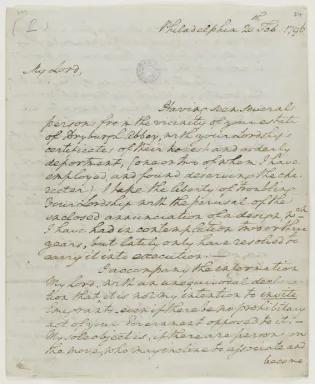 (1)
Philadelphia 20th Feb. 1796
My Lord,
Having seen several
persons from the vicinity of your estate
of Dryburgh Abbey, with your Lordship's
certificates of their honest and orderly
deportment, (one or two of whom I have
employed, and found deserving the cha-
racter) I take the liberty of troubling
Your Lordship with the perusal of the
enclosed annunciation of a design, wch
I have had in contemplation two or three
years, but lately only have resolved to
carry it into execution.—
I accompany the information
My Lord, with an unequivocal decla-
tion that it is not my intention to invite
Emigrants, even if there be no prohibitory
act of your Government opposed to it.—
My sole object is, if there are persons on
the move, who may incline to associate and
become